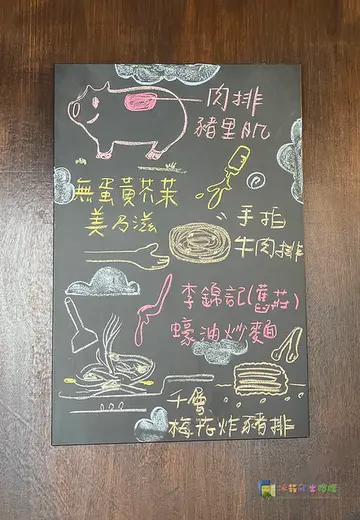 肉排
豬里肌
無蛋黃芥茉
美乃滋
手拍
牛肉排
李錦記(舊莊)
蠔油炒麵
千層
梅花炸豬排